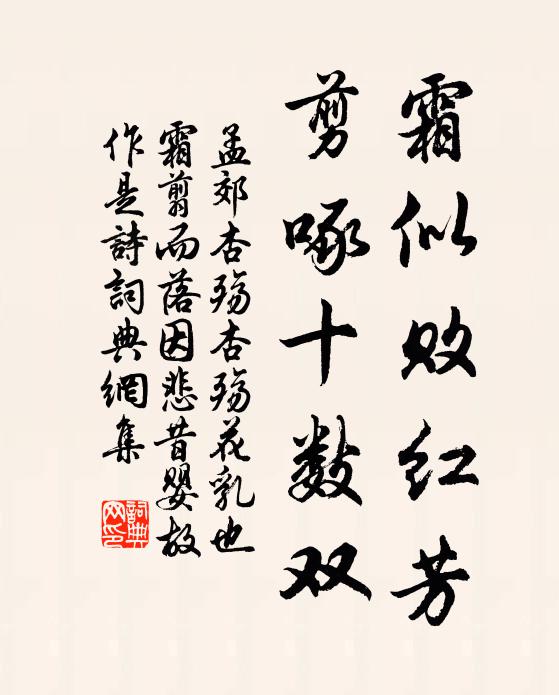 霜似败红芳
剪啄十数双
孟郊杏殇杏殇花乳也
霜翦而落因悲昔婴故
作是詩詞典網集
詞典网印